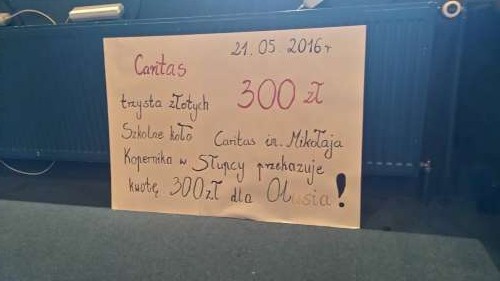 21.05.2016r
Caritas
300 zł
trzysta złotych
Szkolne koło Caritas im. Mikołaja
Kopernika w Słupcy przekazuje
kwotę 300zł dla Olusia!